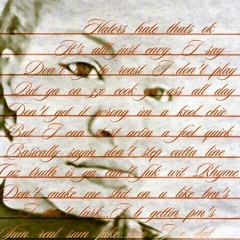 Haters hate thats ok
It's all just envy, I say
Don't roast I don't play
But go on 32 cook ass all day
Don't get it wrong im a kool chic
But I can actin a fool quick
Basically sayin don't step outta line
Cuz truth is ya can't fuk wit Rhyme
Don't make me shit on a like bm's
bark... b gettin pm's
Sum real sum fake... dat